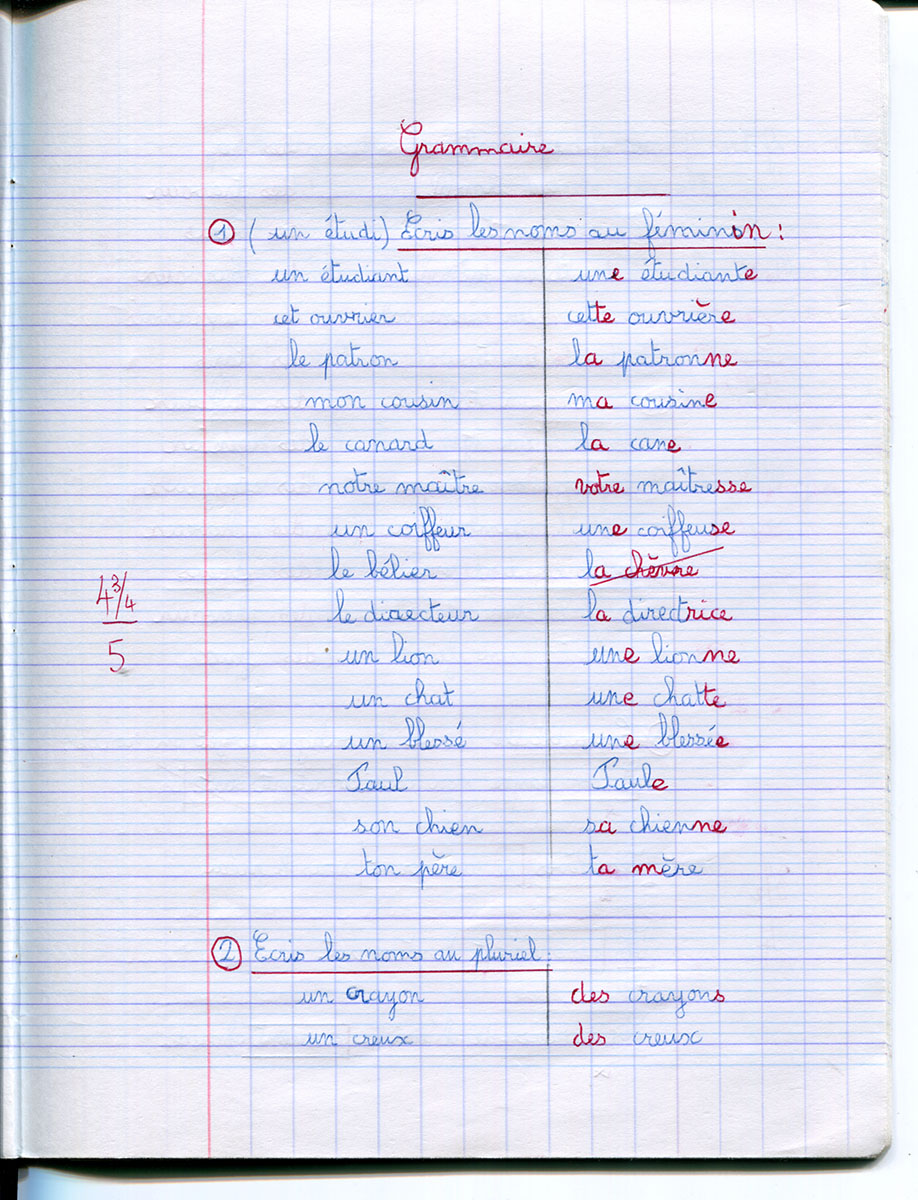 Grammaire
① (un étudi) Écris les noms au féminin :
un étudiant une étudiante
cet ouvrier cette ouvrière
le patron la patronne
mon cousin ma cousine
le canard la cane
notre maître votre maîtresse
un coiffeur une coiffeuse
le bélier la chèvre
le directeur la directrice
un lion une lionne
un chat une chatte
un blessé une blessée
Paul Paule
son chien sa chienne
ton père ta mère
4 3/4
5
② Ecris les noms au pluriel :
un crayon des crayons
un creux des creux